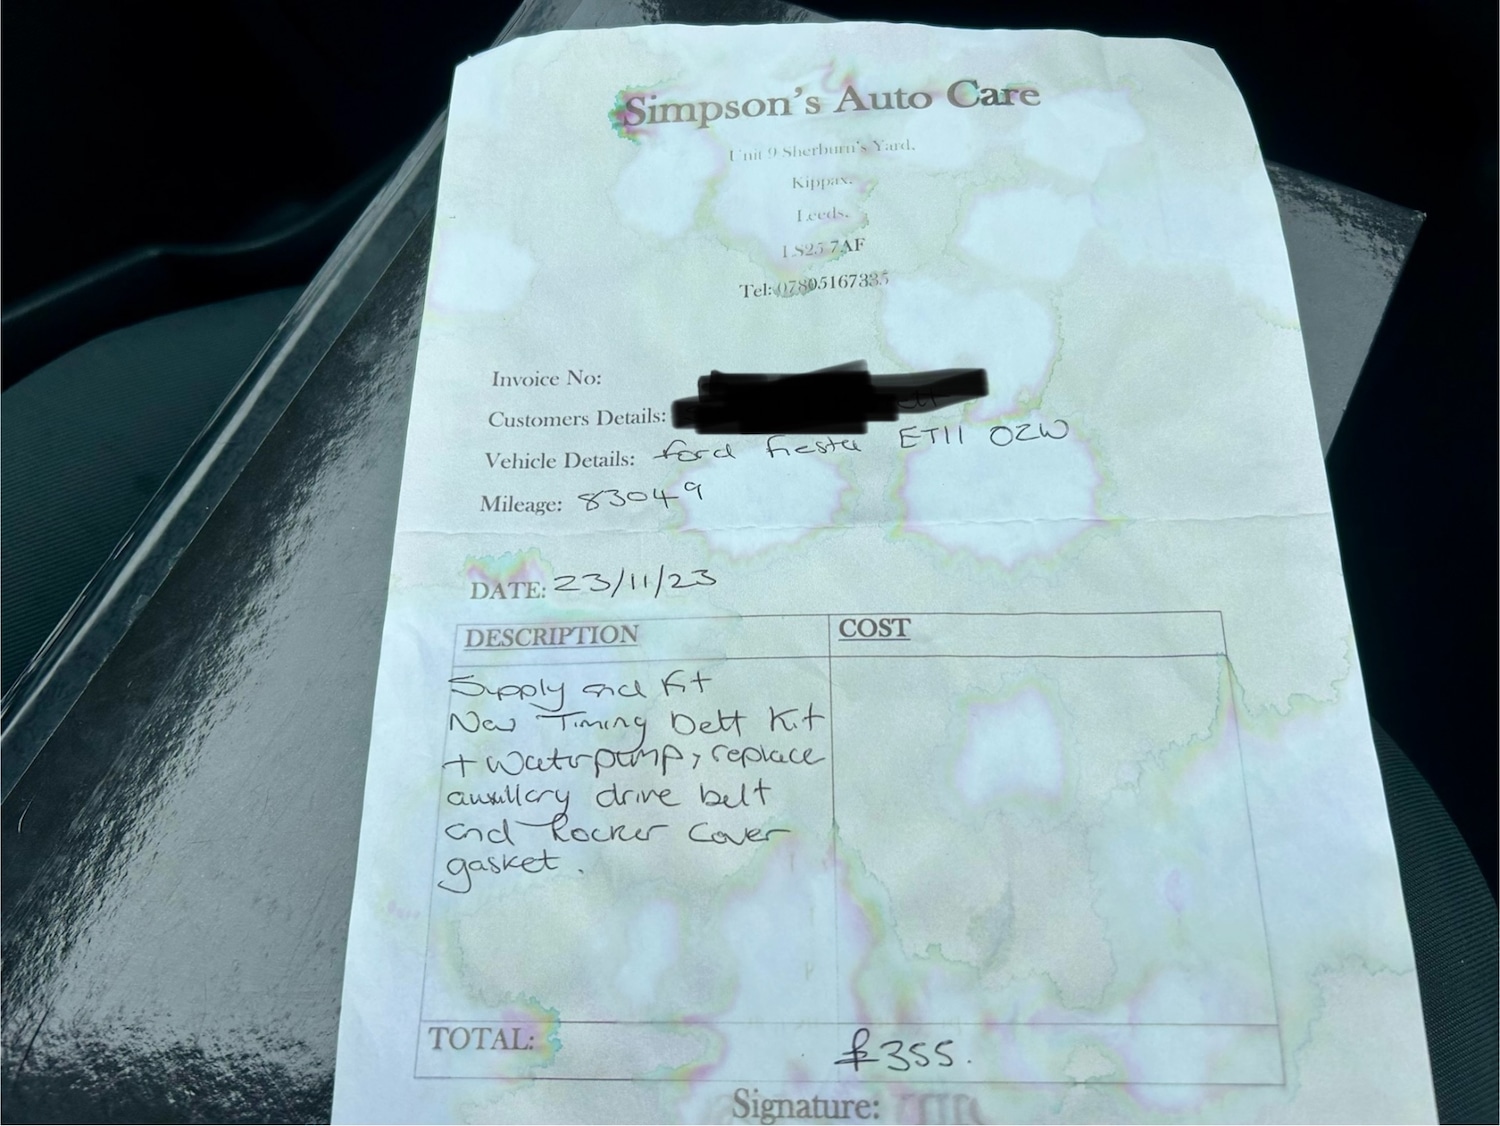 Simpson's Auto Care
Unit 9 Sherburn's Yard,
Kippax,
Leeds,
LS25 7AF
Tel: 07805167335
Invoice No:
Customers Details:
Vehicle Details: Ford fiesta ET11 OZW
Mileage: 83049
DATE: 23/11/23
DESCRIPTION COST
Supply and fit
New Timing belt kit
+ Waterpump, replace
auxillary drive belt
and Rocker Cover
gasket.
TOTAL: £355.
Signature: